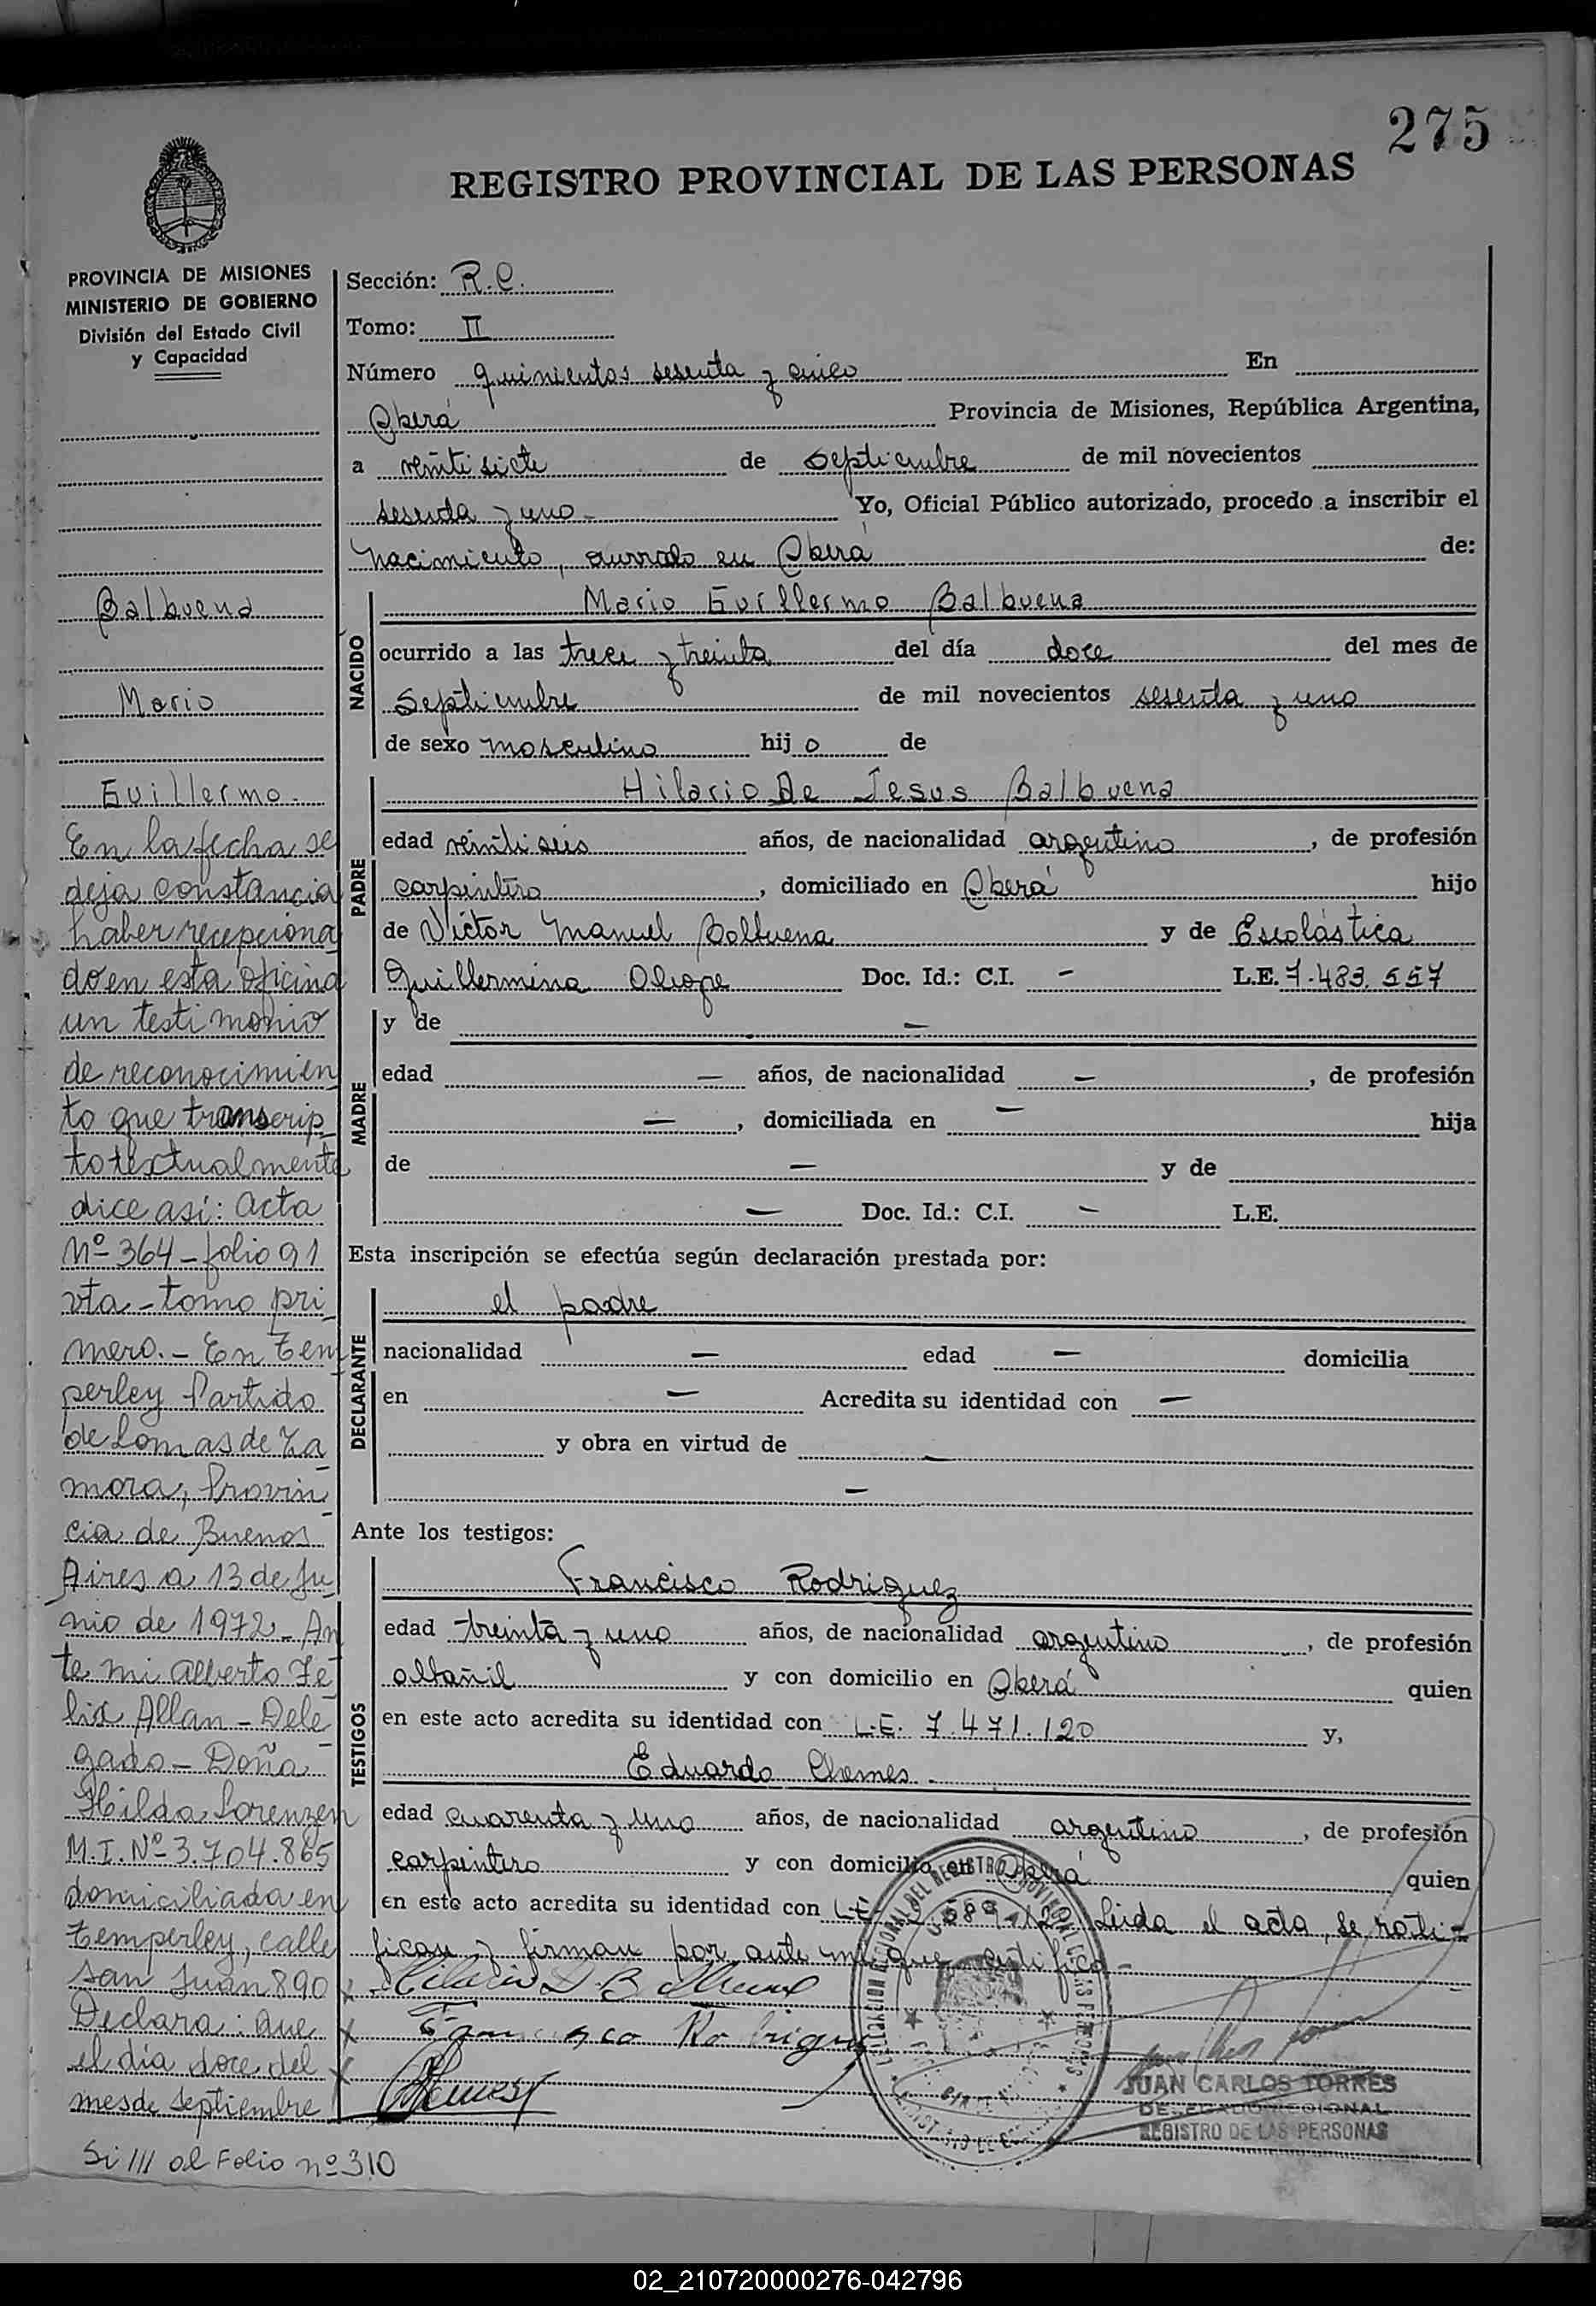 275
REGISTRO PROVINCIAL DE LAS PERSONAS
PROVINCIA DE MISIONES
MINISTERIO DE GOBIERNO
División del Estado Civil
y Capacidad
Balbuena
Mario
Guillermo.
En la fecha se
deja constancia
haber recepciona
do en esta oficina
un testimonio
de reconocimien
to que transcrip_
to textualmente
dice así: Acta
Nº 364 - folio 91
vta - tomo pri_
mero. - En Tem_
perley Partido
de Lomas de Za_
mora, Provin_
cia de Buenos
Aires a 13 de Ju_
nio de 1972 - An_
te mi Alberto Fe_
lix Allan - Dele_
gado - Doña
Hilda Lorenzen
M.I. Nº 3.704.865
domiciliada en
Temperley, calle
San Juan 890
Declara: que
el día doce del
mes de Septiembre
Si /// al Folio nº 310
Sección: R.C.
Tomo: II
Número quinientos sesenta y cinco En
Oberá Provincia de Misiones, República Argentina,
a veintisiete de septiembre de mil novecientos
sesenta y uno - Yo, Oficial Público autorizado, procedo a inscribir el
nacimiento, ocurrido en Oberá de:
NACIDO
Mario Guillermo Balbuena
ocurrido a las trece y treinta del día doce del mes de
septiembre de mil novecientos sesenta y uno
de sexo masculino hijo de
PADRE
Hilario De Jesus Balbuena
edad veintiseis años, de nacionalidad argentino, de profesión
carpintero, domiciliado en Oberá hijo
de Victor Manuel Balbuena y de Escolástica
Guillermina Doc. Id.: C.I. - L.E. 7.483.557
MADRE
y de —
edad — años, de nacionalidad —, de profesión
—, domiciliada en — hija
de — y de
— Doc. Id.: C.I. — L.E.
Esta inscripción se efectúa según declaración prestada por:
DECLARANTE
el padre
nacionalidad — edad — domicilia
en — Acredita su identidad con —
y obra en virtud de —
—
Ante los testigos:
TESTIGOS
Francisco Rodriguez
edad treinta y uno años, de nacionalidad argentino, de profesión
albañil y con domicilio en Oberá quien
en este acto acredita su identidad con L.E. 7.471.120 y,
Eduardo Chemes.
edad cuarenta y uno años, de nacionalidad argentino, de profesión
carpintero y con domicilio en Oberá quien
en este acto acredita su identidad con L.E. Leida el acta, se rati-
fican y firman por ante mi que certifico -
Francisco Rodrigue
JUAN CARLOS TORRES
DELEGADO REGIONAL
REGISTRO DE LAS PERSONAS
02_210720000276-042796